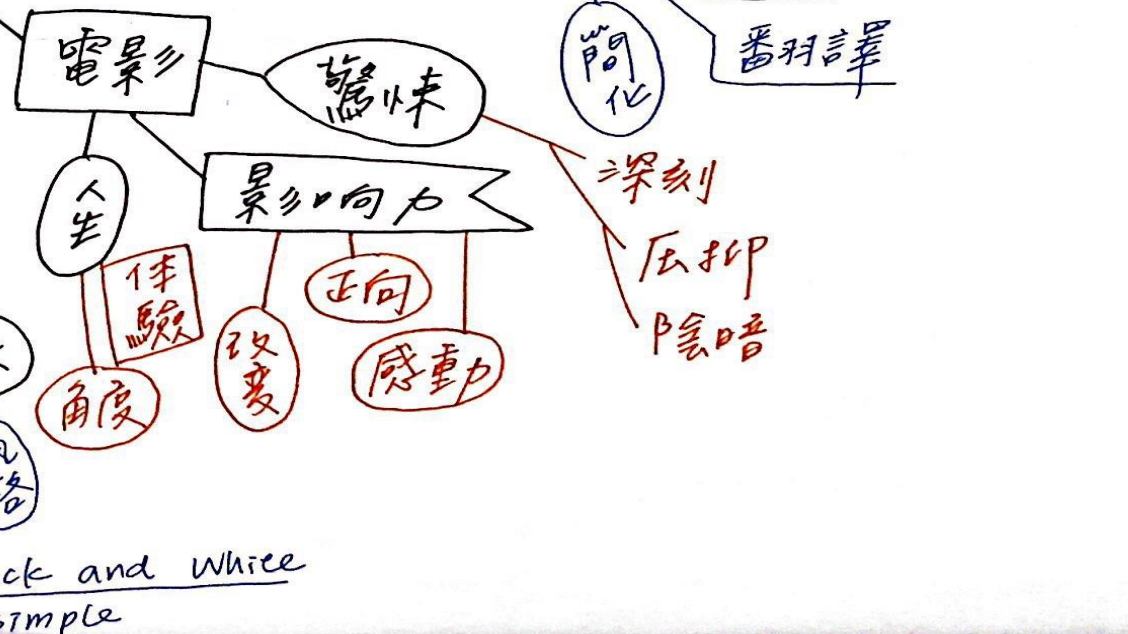 電影
驚悚
簡化
翻譯
人生
影响力
深刻
压抑
陰暗
体驗
正向
改变
感動
角度
and White
simple